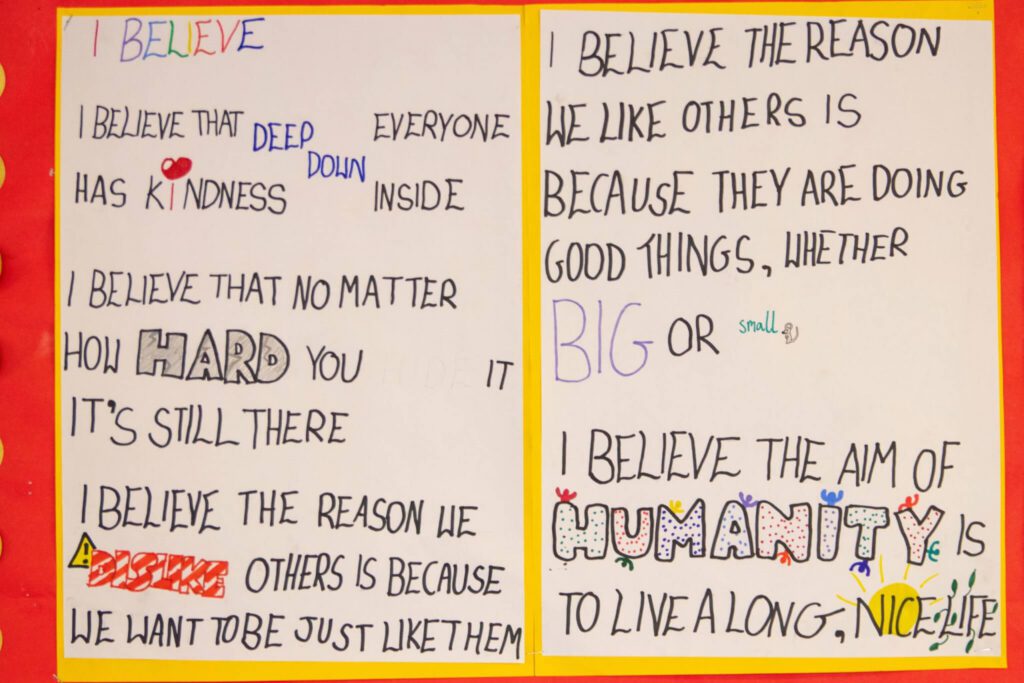 I BELIEVE
I BELIEVE THAT DEEP DOWN EVERYONE
HAS KiNDNESS INSIDE
I BELIEVE THAT NO MATTER
HOW HARD YOU IT
IT'S STILL THERE
I BELIEVE THE REASON WE
DISLIKE OTHERS IS BECAUSE
WE WANT TO BE JUST LIKE THEM
I BELIEVE THE REASON
WE LIKE OTHERS IS
BECAUSE THEY ARE DOING
GOOD THINGS, WHETHER
BIG OR small
I BELIEVE THE AIM OF
HUMANITY IS
TO LIVE A LONG, NICE LIFE